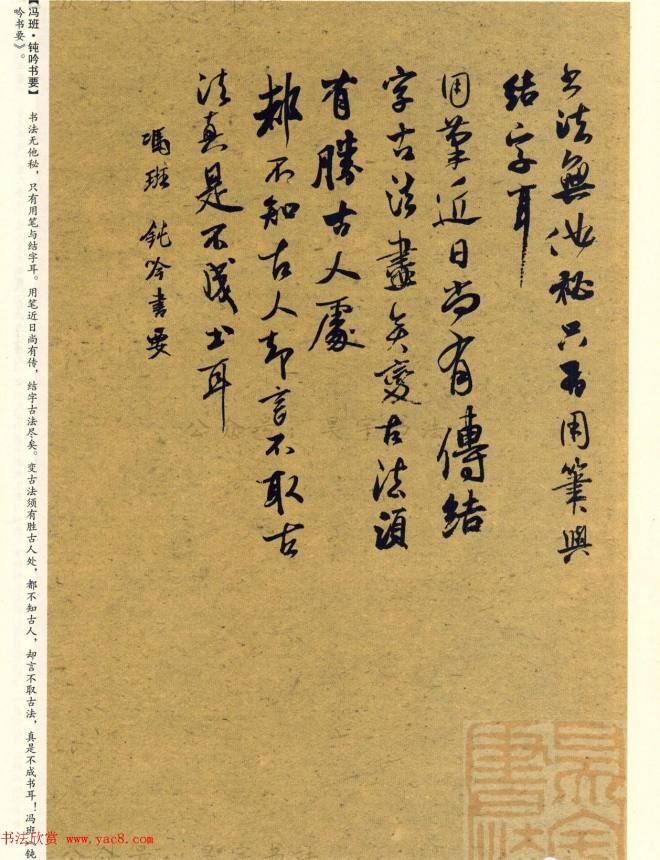 书法無他秘只有用筆與
结字耳
用筆近日尚有傳结
字古法盡矣變古法須
有勝古人處
都不知古人却言不取古
法真是不成书耳
馮班 鈍吟書要
【冯班·钝吟书要】 书法无他秘，只有用笔与结字耳。用笔近日尚有传，结字古法尽矣。变古法须有胜古人处，都不知古人，却言不取古法，真是不成书耳！冯班《钝
吟书要》。
书法欣赏 www.yac8.com